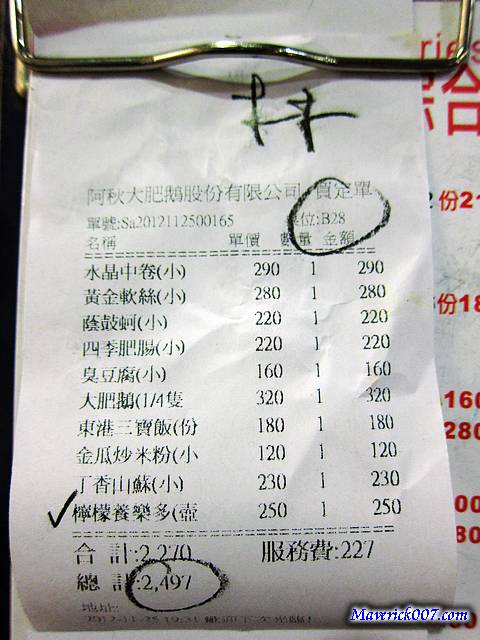 阿秋大肥鵝股份有限公司 買定單
單號:Sa2012112500165 桌位:B28
名稱 單價 數量 金額
水晶中卷(小) 290 1 290
黃金軟絲(小) 280 1 280
蔭鼓蚵(小) 220 1 220
四季肥腸(小) 220 1 220
臭豆腐(小) 160 1 160
大肥鵝(1/4隻 320 1 320
東港三寶飯(份 180 1 180
金瓜炒米粉(小 120 1 120
丁香山蘇(小) 230 1 230
檸檬養樂多(壺 250 1 250
合 計:2,270 服務費:227
總 計:2,497
地址:
2012-11-25 19:31
ries
份21
份18
160
280
00
80
Maverick007.com